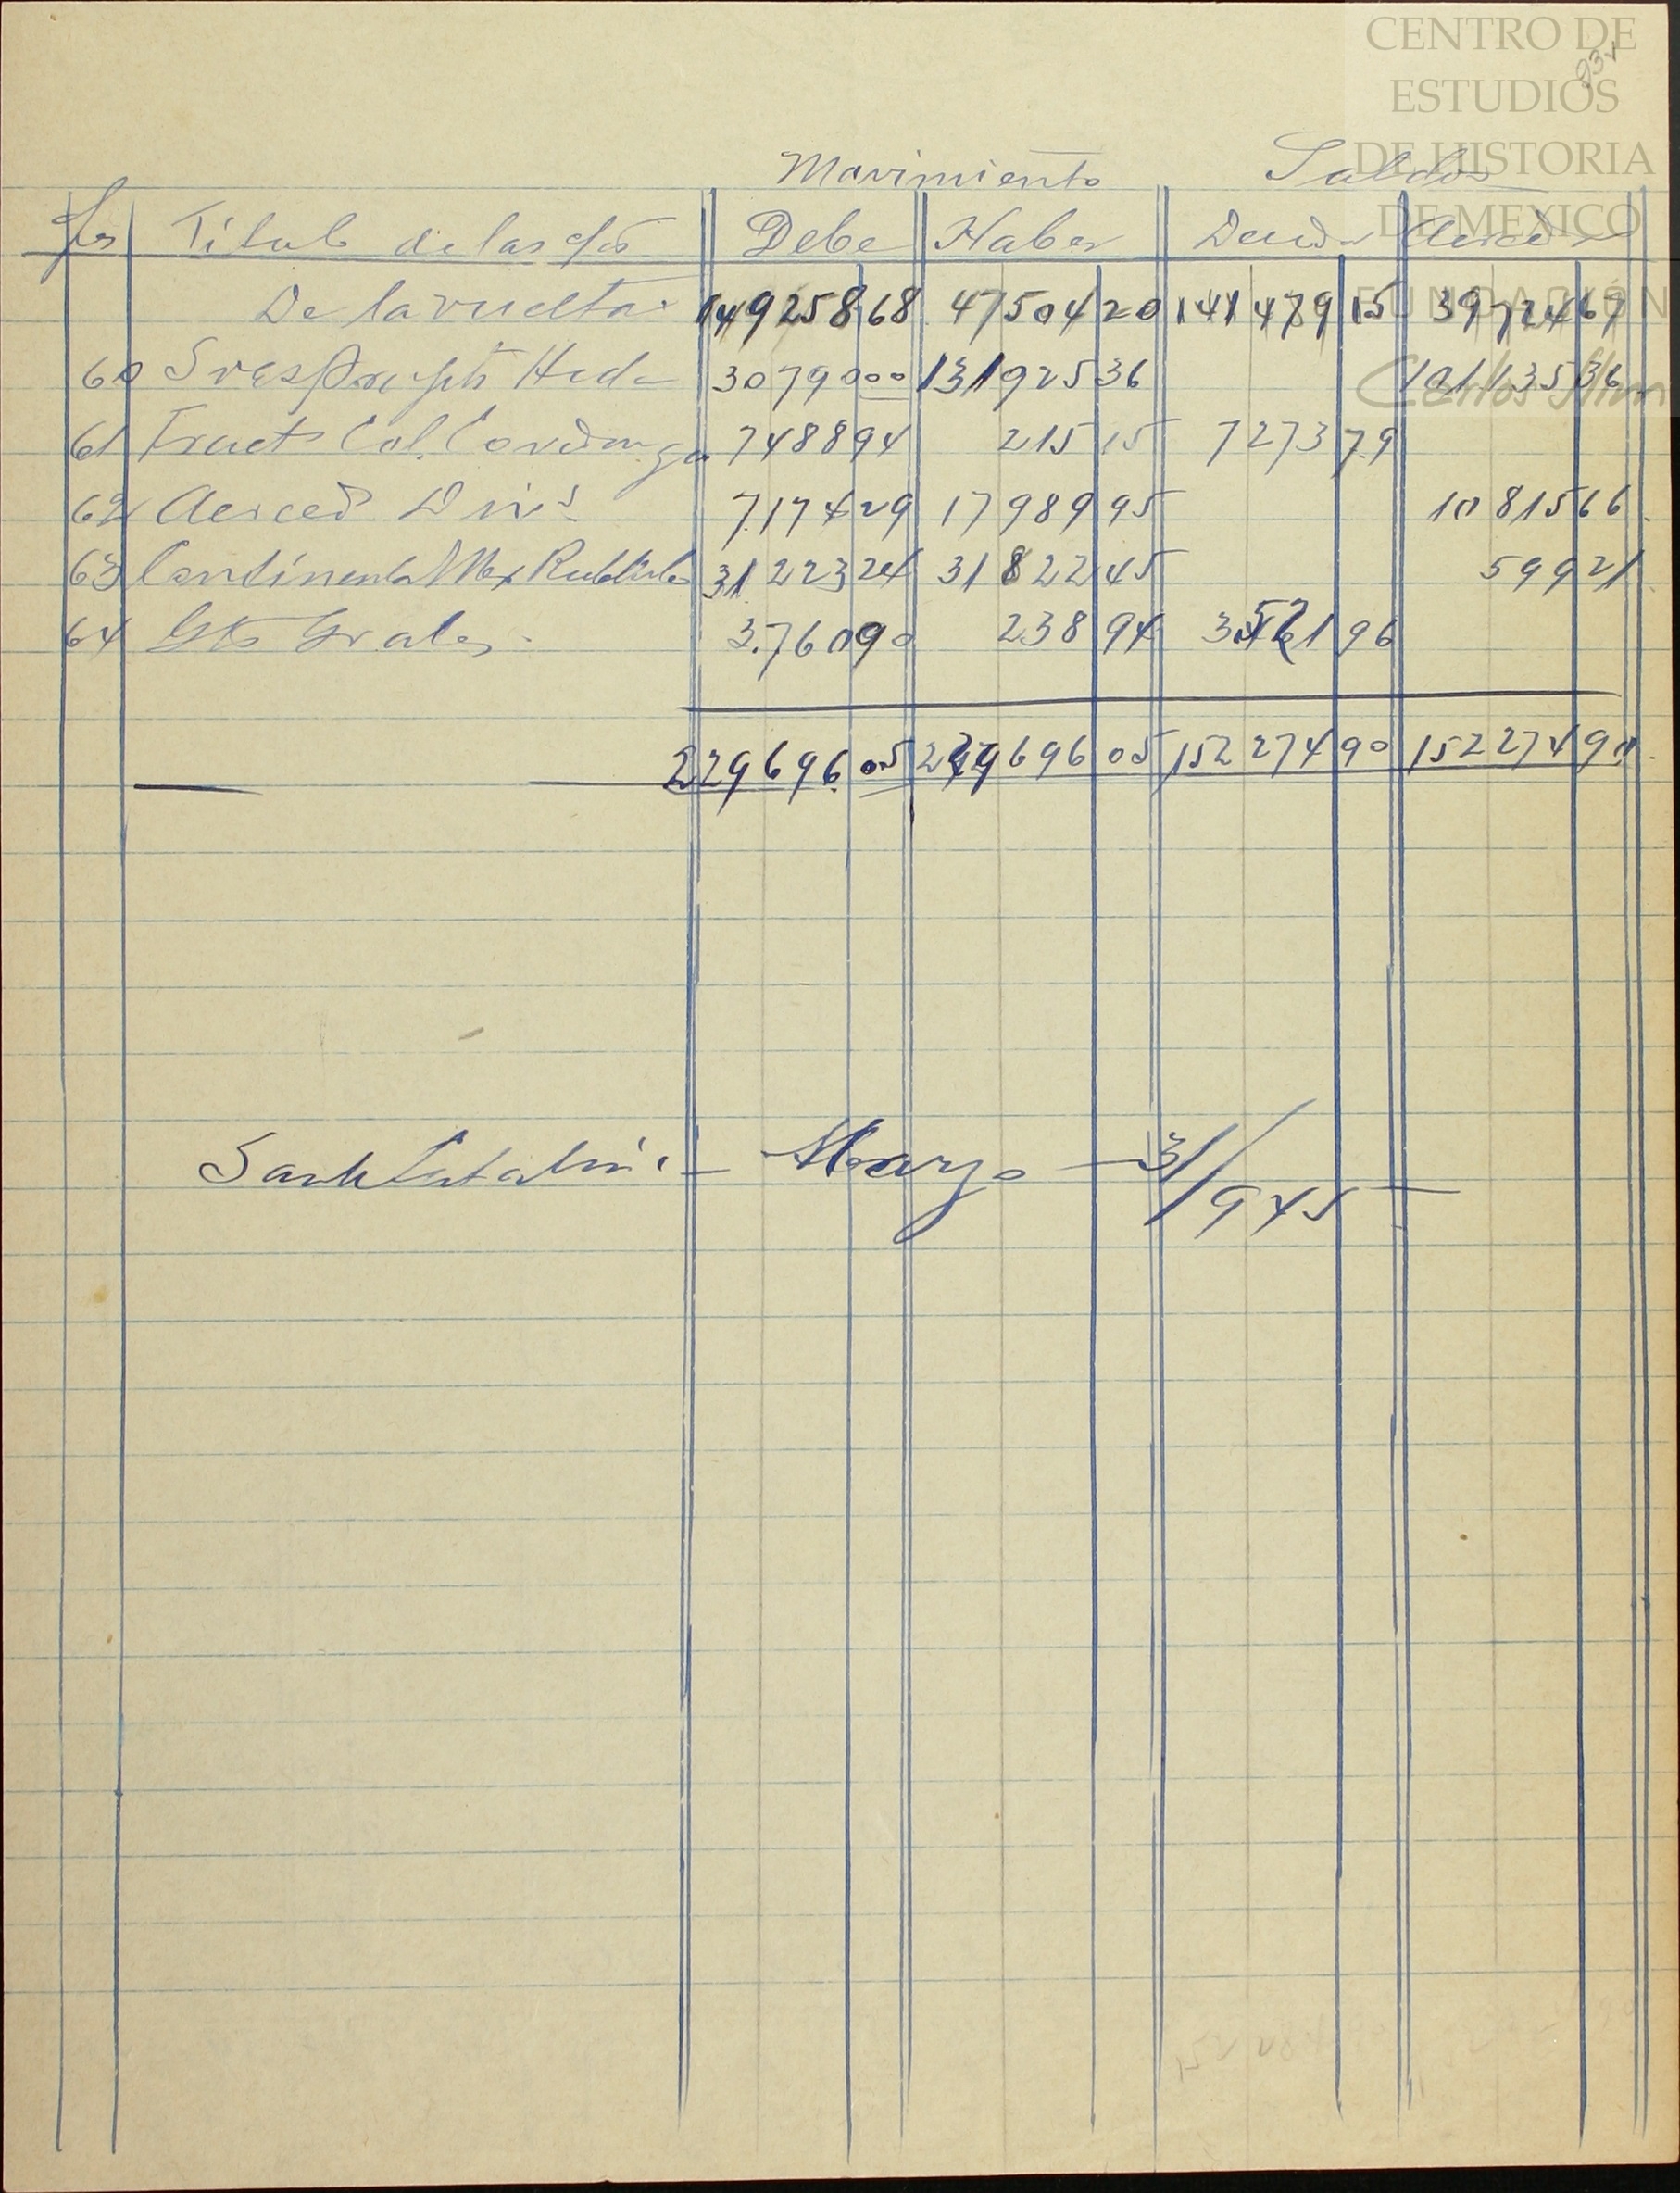 CENTRO DE
ESTUDIOS
DE HISTORIA
DE MEXICO
FUNDACIÓN
Carlos Slim
93v
Movimiento Saldos
Fs Título de las Ctas Debe Haber Deudor Acreedor
De la vuelta 149258 68 47504 20 141479 15 39724 67
60 Sres Hda 30790 00 131925 36 101135 36
61 Fract Col. Covadonga 7488 94 215 15 7273 79
62 Acreed Divs 7174 29 17989 95 10815 66
63 Continental Mex Rubber 31223 24 31822 45 599 21
64 Gts Grales. 3760 90 238 94 3521 96
229696 05 229696 05 152274 90 152274 90
Santa Catalina - Marzo - 31/945